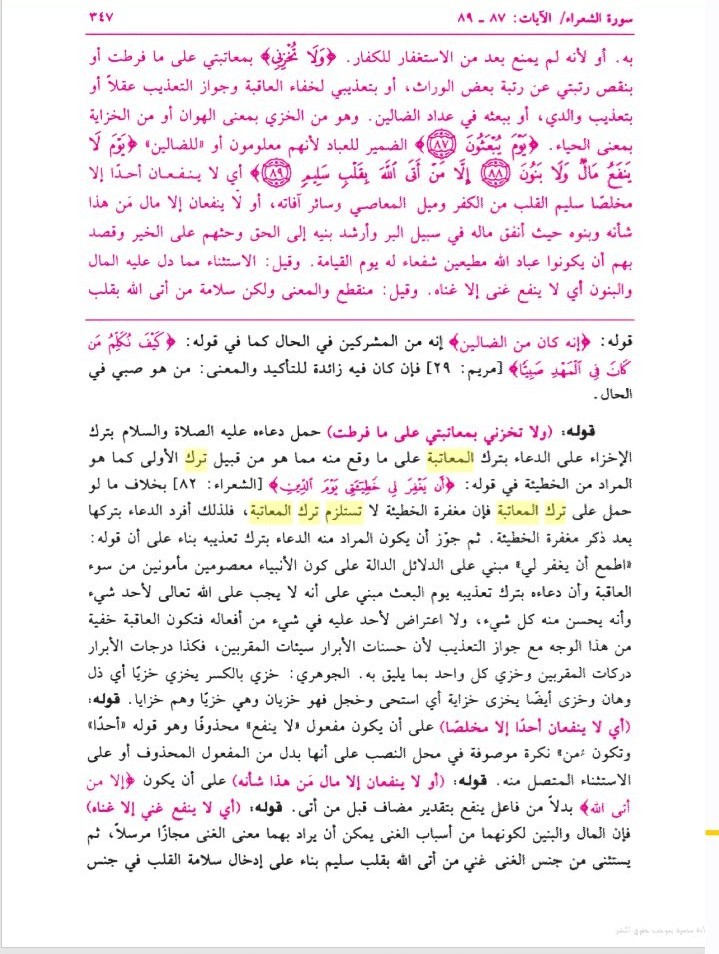 سورة الشعراء/ الآيات: ٨٧ - ٨٩
٣٤٧
به. أو لأنه لم يمنع بعد من الاستغفار للكفار. ﴿وَلَا تُخْزِنِي﴾ بمعاتبتي على ما فرطت أو
بنقص رتبتي عن رتبة بعض الوراث، أو بتعذيبي لخفاء العاقبة وجواز التعذيب عقلاً أو
بتعذيب والدي، أو ببعثه في عداد الضالين. وهو من الخزي بمعنى الهوان أو من الخزاية
بمعنى الحياء. ﴿يَوْمَ يُبْعَثُونَ ﴿٨٧﴾﴾ الضمير للعباد لأنهم معلومون أو «للضالين» ﴿يَوْمَ لَا
يَنفَعُ مَالٌ وَلَا بَنُونَ ﴿٨٨﴾ إِلَّا مَنْ أَتَى اللَّهَ بِقَلْبٍ سَلِيمٍ ﴿٨٩﴾﴾ أي لا ينفعان أحدًا إلا
مخلصًا سليم القلب من الكفر وميل المعاصي وسائر آفاته، أو لا ينفعان إلا مال مَن هذا
شأنه وبنوه حيث أنفق ماله في سبيل البر وأرشد بنيه إلى الحق وحثهم على الخير وقصد
بهم أن يكونوا عباد الله مطيعين شفعاء له يوم القيامة. وقيل: الاستثناء مما دل عليه المال
والبنون أي لا ينفع غنى إلا غناه. وقيل: منقطع والمعنى ولكن سلامة من أتى الله بقلب
قوله: ﴿إنه كان من الضالين﴾ إنه من المشركين في الحال كما في قوله: ﴿كَيْفَ نُكَلِّمُ مَن
كَانَ فِي الْمَهْدِ صَبِيًّا﴾ [مريم: ٢٩] فإن كان فيه زائدة للتأكيد والمعنى: من هو صبي في
الحال.
قوله: (ولا تخزني بمعاتبتي على ما فرطت) حمل دعاءه عليه الصلاة والسلام بترك
الإخزاء على الدعاء بترك المعاتبة على ما وقع منه مما هو من قبيل ترك الأولى كما هو
المراد من الخطيئة في قوله: ﴿أَن يَغْفِرَ لِي خَطِيئَتِي يَوْمَ الدِّينِ﴾ [الشعراء: ٨٢] بخلاف ما لو
حمل على ترك المعاتبة فإن مغفرة الخطيئة لا تستلزم ترك المعاتبة، فلذلك أفرد الدعاء بتركها
بعد ذكر مغفرة الخطيئة. ثم جوّز أن يكون المراد منه الدعاء بترك تعذيبه بناء على أن قوله:
«اطمع أن يغفر لي» مبني على الدلائل الدالة على كون الأنبياء معصومين مأمونين من سوء
العاقبة وأن دعاءه بترك تعذيبه يوم البعث مبني على أنه لا يجب على الله تعالى لأحد شيء
وأنه يحسن منه كل شيء، ولا اعتراض لأحد عليه في شيء من أفعاله فتكون العاقبة خفية
من هذا الوجه مع جواز التعذيب لأن حسنات الأبرار سيئات المقربين، فكذا درجات الأبرار
دركات المقربين وخزي كل واحد بما يليق به. الجوهري: خزي بالكسر يخزي خزيًا أي ذل
وهان وخزى أيضًا يخزى خزاية أي استحى وخجل فهو خزيان وهي خزيًا وهم خزايا. قوله:
(أي لا ينفعان أحدًا إلا مخلصًا) على أن يكون مفعول «لا ينفع» محذوفًا وهو قوله «أحدًا»
وتكون «من» نكرة موصوفة في محل النصب على أنها بدل من المفعول المحذوف أو على
الاستثناء المتصل منه. قوله: (أو لا ينفعان إلا مال مَن هذا شأنه) على أن يكون ﴿إلا من
أتى الله﴾ بدلاً من فاعل ينفع بتقدير مضاف قبل من أتى. قوله: (أي لا ينفع غني إلا غناه)
فإن المال والبنين لكونهما من أسباب الغنى يمكن أن يراد بهما معنى الغنى مجازًا مرسلاً، ثم
يستثنى من جنس الغنى غني من أتى الله بقلب سليم بناء على إدخال سلامة القلب في جنس